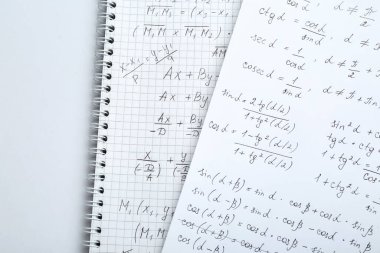 M₁M₂ = (x₂ - x₁
(M₁M × M₁M₂)
x - x₁ / p = y - y₁
Ax + By
Ax + By
Ax/-D + By/
x/(-D/A) + y/
M₁(x₁, y
(M₁M,
ctg α = cos α / sin α, α ≠
sec α = 1/cos α, α ≠ π/2
cosec α = 1/sin α, α ≠ π +
sin α = 2tg(α/2) / 1+tg²(α/2)
cos α = 1-tg²(α/2) / 1+tg²(α/2)
sin²α +
tg α ·
1+tg²
1+ctg²α =
sin(α+β) = sin α · cos β + cos α · sin
sin(α-β) = sin α · cos β - cos α
cos(α+β) = cos α · cos β - sin
cos(α-β) = cos α · cos